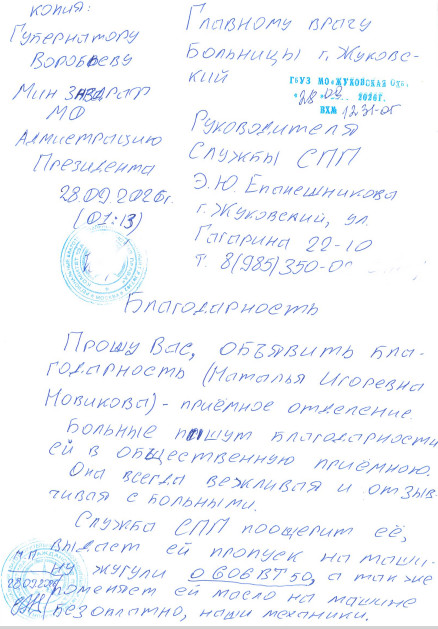 копия:
Губернатору
Воробьеву
Минздрав
МО
Адмиетрацию
Президента
28.09.2026г.
(01:13)
Главному врачу
Больницы г. Жуковс-
кий
ГБУЗ МО «ЖУКОВСКАЯ ОКБ»
"28" 09 2026г.
ВХ№ 1231-ОГ
Руководителя
Службы СПП
Э.Ю. Епанешникова
г. Жуковский, ул.
Гагарина 22-10
т. 8(985)350-0
Благодарность
Прошу Вас, объявить бла-
годарность (Наталья Игоревна
Новикова) - приёмное отделение.
Больные пишут благодарности
ей в общественную приёмною.
Она всегда вежливая и отзыв-
чивая с больными.
Служба СПП поощерит её,
выдаст ей пропуск на маши-
ну жугули О606ВТ50, а также
поменяет ей масло на машине
безоплатно, наши механики.
М.П.
28.09.2026г